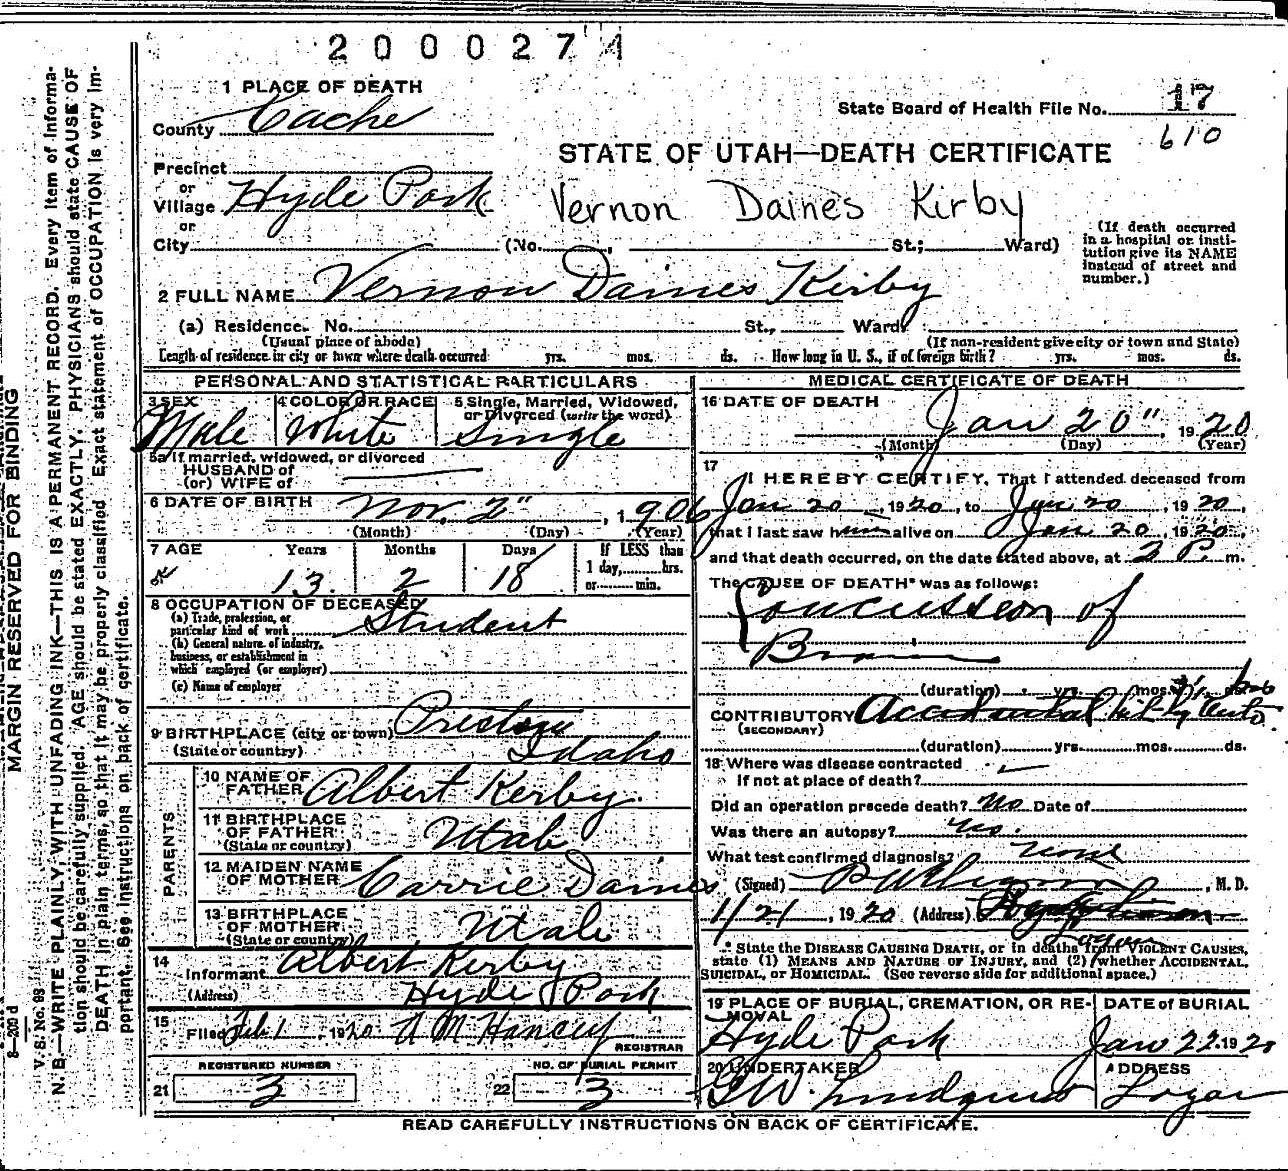 2000274
1 PLACE OF DEATH
County Cache
State Board of Health File No. 17
610
STATE OF UTAH—DEATH CERTIFICATE
Precinct
or
Village Hyde Park
or
City (No. , St.; Ward)
Vernon Daines Kirby
(If death occurred
in a hospital or insti-
tution give its NAME
instead of street and
number.)
2 FULL NAME Vernon Daines Kirby
(a) Residence. No. St., Ward.
(Usual place of abode) (If non-resident give city or town and State)
Length of residence in city or town where death occurred yrs. mos. ds. How long in U. S., if of foreign birth? yrs. mos. ds.
PERSONAL AND STATISTICAL PARTICULARS
3 SEX 4 COLOR OR RACE 5 Single, Married, Widowed,
or Divorced (write the word)
Male White Single
5a If married, widowed, or divorced
HUSBAND of
(or) WIFE of
6 DATE OF BIRTH Nov. 2" , 1906
(Month) (Day) (Year)
7 AGE Years Months Days If LESS than
1 day, hrs.
or min.
13 2 18
8 OCCUPATION OF DECEASED
(a) Trade, profession, or
particular kind of work Student
(b) General nature of industry,
business, or establishment in
which employed (or employer)
(c) Name of employer
9 BIRTHPLACE (city or town) Preston
(State or country) Idaho
PARENTS
10 NAME OF
FATHER Albert Kerby
11 BIRTHPLACE
OF FATHER Utah
(State or country)
12 MAIDEN NAME
OF MOTHER Carrie Daines
13 BIRTHPLACE
OF MOTHER Utah
(State or country)
14
Informant Albert Kerby
(Address) Hyde Park
15
Filed Feb 1, 1920 A M Hancey
REGISTRAR
REGISTERED NUMBER NO. OF BURIAL PERMIT
21 3 22 3
MEDICAL CERTIFICATE OF DEATH
16 DATE OF DEATH
Jan 20", 1920
(Month) (Day) (Year)
17
I HEREBY CERTIFY, That I attended deceased from
Jan 20, 1920, to Jan 20, 1920,
that I last saw him alive on Jan 20, 1920,
and that death occurred, on the date stated above, at 2 P. m.
The CAUSE OF DEATH* was as follows:
Concussion of
Brain
(duration) yrs. mos. ds.
CONTRIBUTORY Accidental hit by Auto
(SECONDARY)
(duration) yrs. mos. ds.
18 Where was disease contracted
if not at place of death?
Did an operation precede death? No Date of
Was there an autopsy? No.
What test confirmed diagnosis? none
(Signed) , M. D.
1/21, 1920 (Address) Logan
* State the DISEASE CAUSING DEATH, or in deaths from VIOLENT CAUSES,
state (1) MEANS AND NATURE OF INJURY, and (2) whether ACCIDENTAL,
SUICIDAL, or HOMICIDAL. (See reverse side for additional space.)
19 PLACE OF BURIAL, CREMATION, OR RE-
MOVAL
Hyde Park
DATE of BURIAL
Jan 22. 1920
20 UNDERTAKER
ADDRESS
Logan
READ CAREFULLY INSTRUCTIONS ON BACK OF CERTIFICATE.
MARGIN RESERVED FOR BINDING
V. S. No. 93
N. B.—WRITE PLAINLY, WITH UNFADING INK—THIS IS A PERMANENT RECORD. Every item of informa-
tion should be carefully supplied. AGE should be stated EXACTLY. PHYSICIANS should state CAUSE OF
DEATH in plain terms, so that it may be properly classified. Exact statement of OCCUPATION is very im-
portant. See instructions on back of certificate.